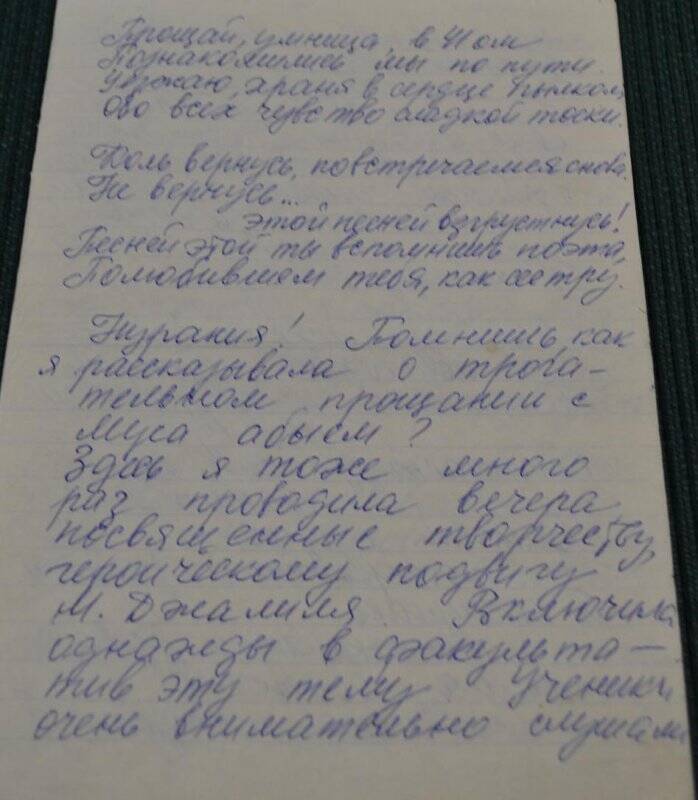 Прощай, умница, в 41ом
Познакомились мы по пути.
Уезжаю, храня в сердце пылком
Обо всех чувство сладкой тоски.
Коль вернусь, повстречаемся снова.
Не вернусь...
этой песней взгрустнусь!
Песней этой ты вспомнишь поэта,
Полюбившем тебя, как сестру.
! Помнишь, как
я рассказывала о трога-
тельном прощании с
Муса абыем?
Здесь я тоже много
раз проводила вечера
посвященные творчеству
героическому подвигу
М. Джалиля. Включила
однажды в факульта-
тив эту тему. Ученики
очень внимательно слушали